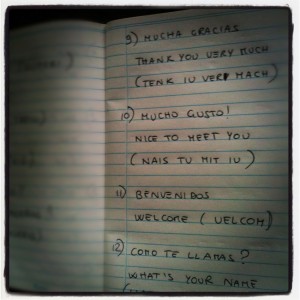 9) MUCHA GRACIAS
THANK YOU VERY MUCH
(TENK IU VERI MACH)
10) MUCHO GUSTO!
NICE TO MEET YOU
(NAIS TU MIT IU)
11) BENVENIDOS
WELCOME (UELCOM)
12) COMO TE LLAMAS?
WHAT'S YOUR NAME